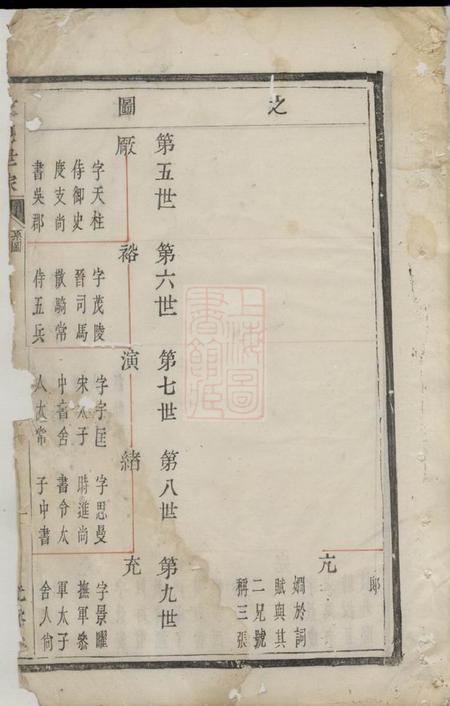 之圖
邸
亢
嫺於詞
賦與其
二兄號
稱三張
第五世
第六世
第七世
第八世
第九世
厰
字天柱
侍御史
度支尚
書吳郡
裕
字茂陵
晉司馬
散騎常
侍五兵
演
字字匡
宋太子
中書舍
人太常
緒
字思曼
時進尚
書令太
子中書
充
字景曜
撫軍叅
軍太子
舍人尙
世家
系圖
上海圖書館藏